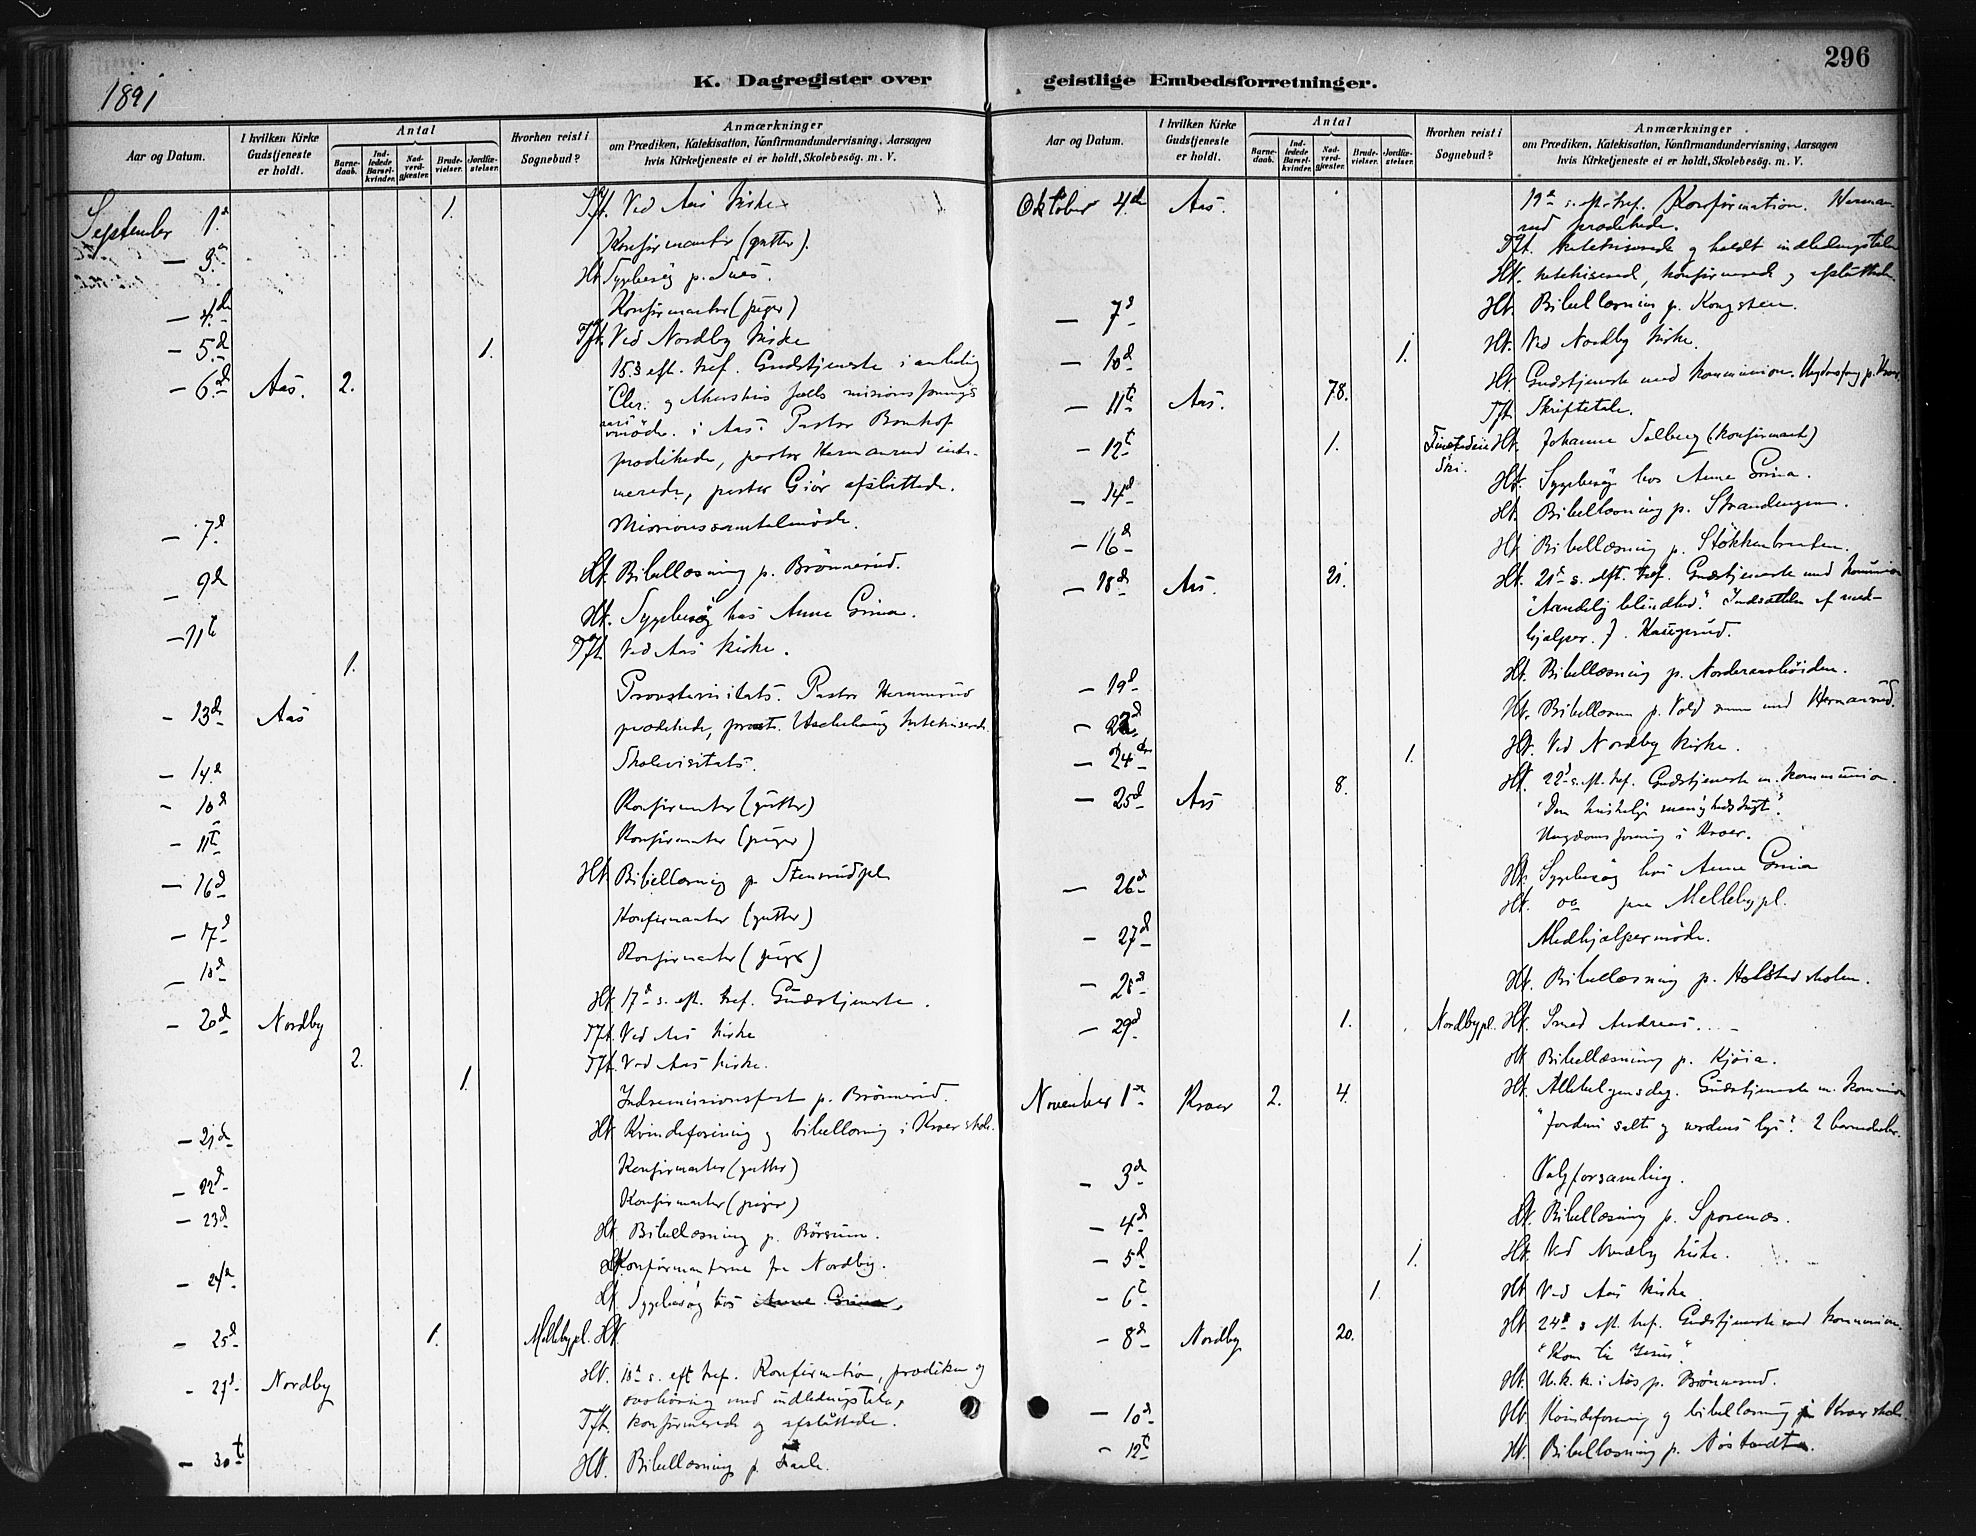 1891
K. Dagregister over
Aar og Datum.
I hvilken Kirke Gudstjeneste er holdt.
Antal
Barne-daab.
Ind-ledede Barsel-kvinder.
Nad-verd-gjæster.
Brude-vielser.
Jordfæ-stelser.
Hvorhen reist i Sognebud?
Anmærkninger
om Prædiken, Katekisation, Konfirmandundervisning, Aarsagen
hvis Kirketjeneste ei er holdt, Skolebesög. m. V.
September 1. 1. Tft. Ved Aas kirke
— 3. Konfirmanter (gutter).
Ht. Sygebesög p.
— 4. Konfirmanter (piger)
— 5. 1. Tft. Ved Nordby kirke
— 6. Aas. 2. 15. s. eft. tref. Gudstjeneste i anledning
og Akershus fælles missionsforenings
möde. i Aas. Pastor
prædikede, pastor Hermanrud
pastor Giör afsluttede.
— 7. Missionssamtalemöde.
— 9. Ht. Bibellæsning p. Brönnerud.
— 11. Ht. Sygebesög hos Anne Grina.
1. Tft. Ved Aas kirke.
— 13. Aas Provstevisitats. Pastor Hermanrud
prædikede, katekiserede
— 14. Skolevisitats.
— 10. Konfirmanter (gutter)
— 11. Konfirmanter (piger)
— 16. Ht. Bibellæsning p. Stensrudpl.
— 17. Konfirmanter (gutter)
— 18. Konfirmanter (piger)
— 20. Nordby Ht. 17. s. eft. tref. Gudstjeneste.
2. Tft. Ved Aas kirke
1. Tft. Ved Aas kirke.
Indremissionsfest p. Brönnerud.
— 21. Ht. Kvindeforening og bibellæsning i Kroer skole.
— 22. Konfirmanter (gutter)
— 23. Konfirmanter (piger)
Ht. Bibellæsning p. Börsum.
— 24. Ht. Konfirmanterne fra Nordby.
Ht. Sygebesög hos Anne Grina.
— 25. 1. Mellebypl. Ht.
— 27. Nordby Ht. 18. s. eft tref. Konfirmation, prædiken og
overhöring med indledningstale,
Tft. konfirmerede og afsluttede.
— 30. Ht. Bibellæsning p.
296
geistlige Embedsforretninger.
Aar og Datum.
I hvilken Kirke Gudstjeneste er holdt.
Antal
Barne-daab.
Ind-ledede Barsel-kvinder.
Nad-verd-gjæster.
Brude-vielser.
Jordfæ-stelser.
Hvorhen reist i Sognebud?
Anmærkninger
om Prædiken, Katekisation, Konfirmandundervisning, Aarsagen
hvis Kirketjeneste ei er holdt, Skolebesög. m. V.
Oktober 4. Aas. 19. s. eft. tref. Konfirmation. Herman-
rud prædikede.
Tft. katekiserede og holdt indledningstalen
Ht. katekiserede, konfirmerede og afsluttede.
— 7. Ht. Bibellæsning p. Kongsteen.
— 10. 1. Ht. Ved Nordby kirke.
— 11. Aas. 78. Ht. Gudstjeneste med kommunion. p. Kroer.
Tft. Skriftetale.
— 12. 1. Ski. Ht. Johanne Solberg (konfirmant)
— 14. Ht. Sygebesög hos Anne Grina.
Ht. Bibellæsning p. Strandengen.
— 16. Ht. Bibellæsning p. Stökkenbraaten.
— 18. Aas. 21. Ht. 21. s. eft. tref. Gudstjeneste med kommunion
"Aandelig blindhed." Indsættelse af med-
hjælper. J. Haugerud.
— 19. Ht. Bibellæsning p. Norderaashöiden.
— 22. Ht. Bibellæsn. p. Vold med Hermanrud.
— 24. 1. Ht. Ved Nordby kirke.
— 25. Aas 8. Ht. 22. s. eft. tref. Gudstjeneste m. kommunion.
Ungdomsforening i Kroer.
— 26. Ht. Sygebesög hos Anne Grina
Ht. og paa Mellebypl.
— 27. Medhjælpermöde.
— 28. Ht. Bibellæsning p. Holstad skolen.
— 29. 1. Nordbypl. Ht. Smed Andreas.
Ht. Bibellæsning p. Kjöia.
November 1. Kroer 2. 4. Ht. Allehelgensdag. Gudstjeneste m. kommunion
"Jordens salt og verdens lys". 2 barnedaab.
— 3. Valgforsamling.
— 4. Ht. Bibellæsning p. Sponæs.
— 5. 1. Ht. Ved Nordby kirke.
— 6. 1. Ht. Ved Aas kirke
— 8. Nordby 20. Ht. 24. s. eft. tref. Gudstjeneste med kommunion.
"Kom til Jesus".
Ht. U. k. k. i Aas p. Brönnerud.
— 10. Ht. Kvindeforening og bibellæsning p. Kroer skole.
— 12. Ht. Bibellæsning p.